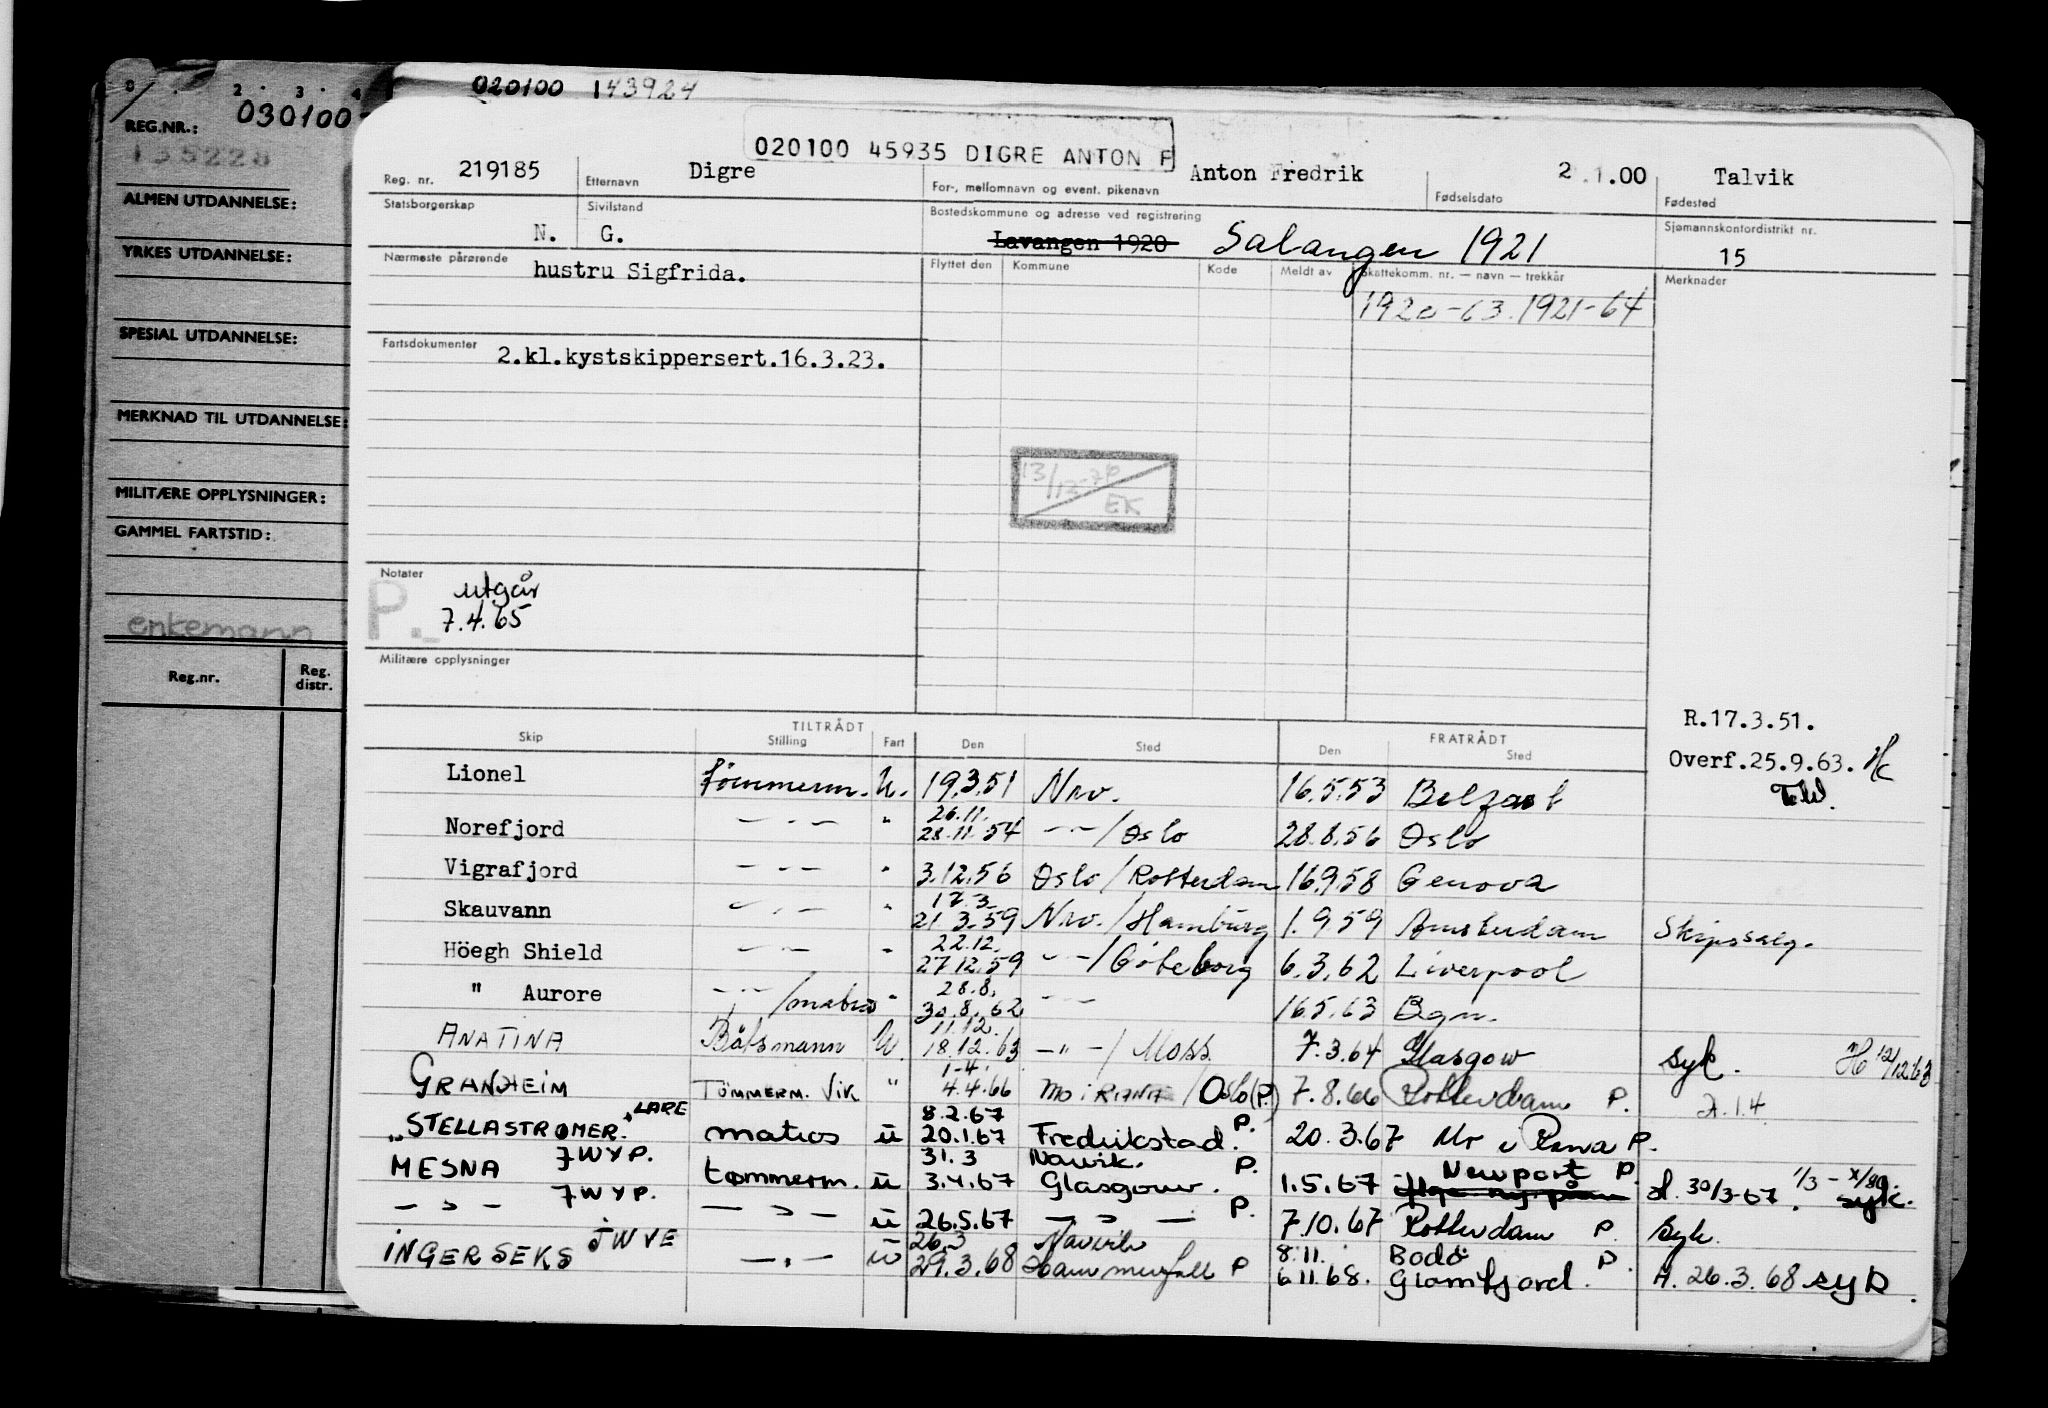 0 . 2 . 3 . 4
020100 143924
REG.NR.: 030100
135228
ALMEN UTDANNELSE:
YRKES UTDANNELSE:
SPESIAL UTDANNELSE:
MERKNAD TIL UTDANNELSE:
MILITÆRE OPPLYSNINGER:
GAMMEL FARTSTID:
enkemann
Reg.nr. Reg. distr.
020100 45935 DIGRE ANTON F
Reg. nr. 219185 Etternavn Digre For-, mellomnavn og event. pikenavn Anton Fredrik Fødselsdato 2.1.00 Fødested Talvik
Statsborgerskap N. Sivilstand G. Bostedskommune og adresse ved registrering Lavangen 1920 Salangen 1921 Sjømannskontordistrikt nr. 15
Nærmeste pårørende hustru Sigfrida.
Flyttet den Kommune Kode Meldt av Skattekomm. nr. — navn — trekkår Merknader
1920-63. 1921-64
Fartsdokumenter 2.kl.kystskippersert.16.3.23.
13/12-76 EK
Notater
P. utgår
7.4.65
Militære opplysninger
R.17.3.51.
Overf.25.9.63.
TILTRÅDT FRATRÅDT
Skip Stilling Fart Den Sted Den Sted
Lionel tömmerm. U. 19.3.51 Nrv. 16.5.53 Belfast
Norefjord — " — " 26.11. 28.11.54 — " — / Oslo 28.8.56 Oslo
Vigrafjord — " — " 3.12.56 Oslo / Rotterdam 16.9.58 Genova
Skauvann — " — " 17.3. 21.3.59 Nrv. / Hamburg 1.9.59 Amsterdam Skipssalg.
Höegh Shield — " — " 22.12. 27.12.59 — " — / Göteborg 6.3.62 Liverpool
" Aurore — " — / matros " 28.8. 30.8.62 — " — 16.5.63 Bgn.
ANATINA Båtsmann U. 11.12. 18.12.63 — " — / Moss 7.3.64 Glasgow syk. 12/12 63
GRANHEIM TÖMMERM. Vik " 1-4. 4.4.66 MO i RANA / Oslo (P.) 7.8.66 Rotterdam P. 2.1.4
"STELLASTRØMER" LARE matros u 8.2.67 20.1.67 Fredrikstad. P. 20.3.67 Mo i Rana P.
MESNA JWYP. tømmerm. u 31.3 3.4.67 Narvik. Glasgow. P. 1.5.67 Newport P. d. 30/3-67. syk.
— " — JWYP. — " — u 26.5.67 — " — P. 7.10.67 Rotterdam P. syk.
INGERSEKS JWVE — " — u 26.3 29.3.68 Narvik Hammerfall P 8.11. 6.11.68. Bodö Glomfjord. P. A. 26.3.68 syk.